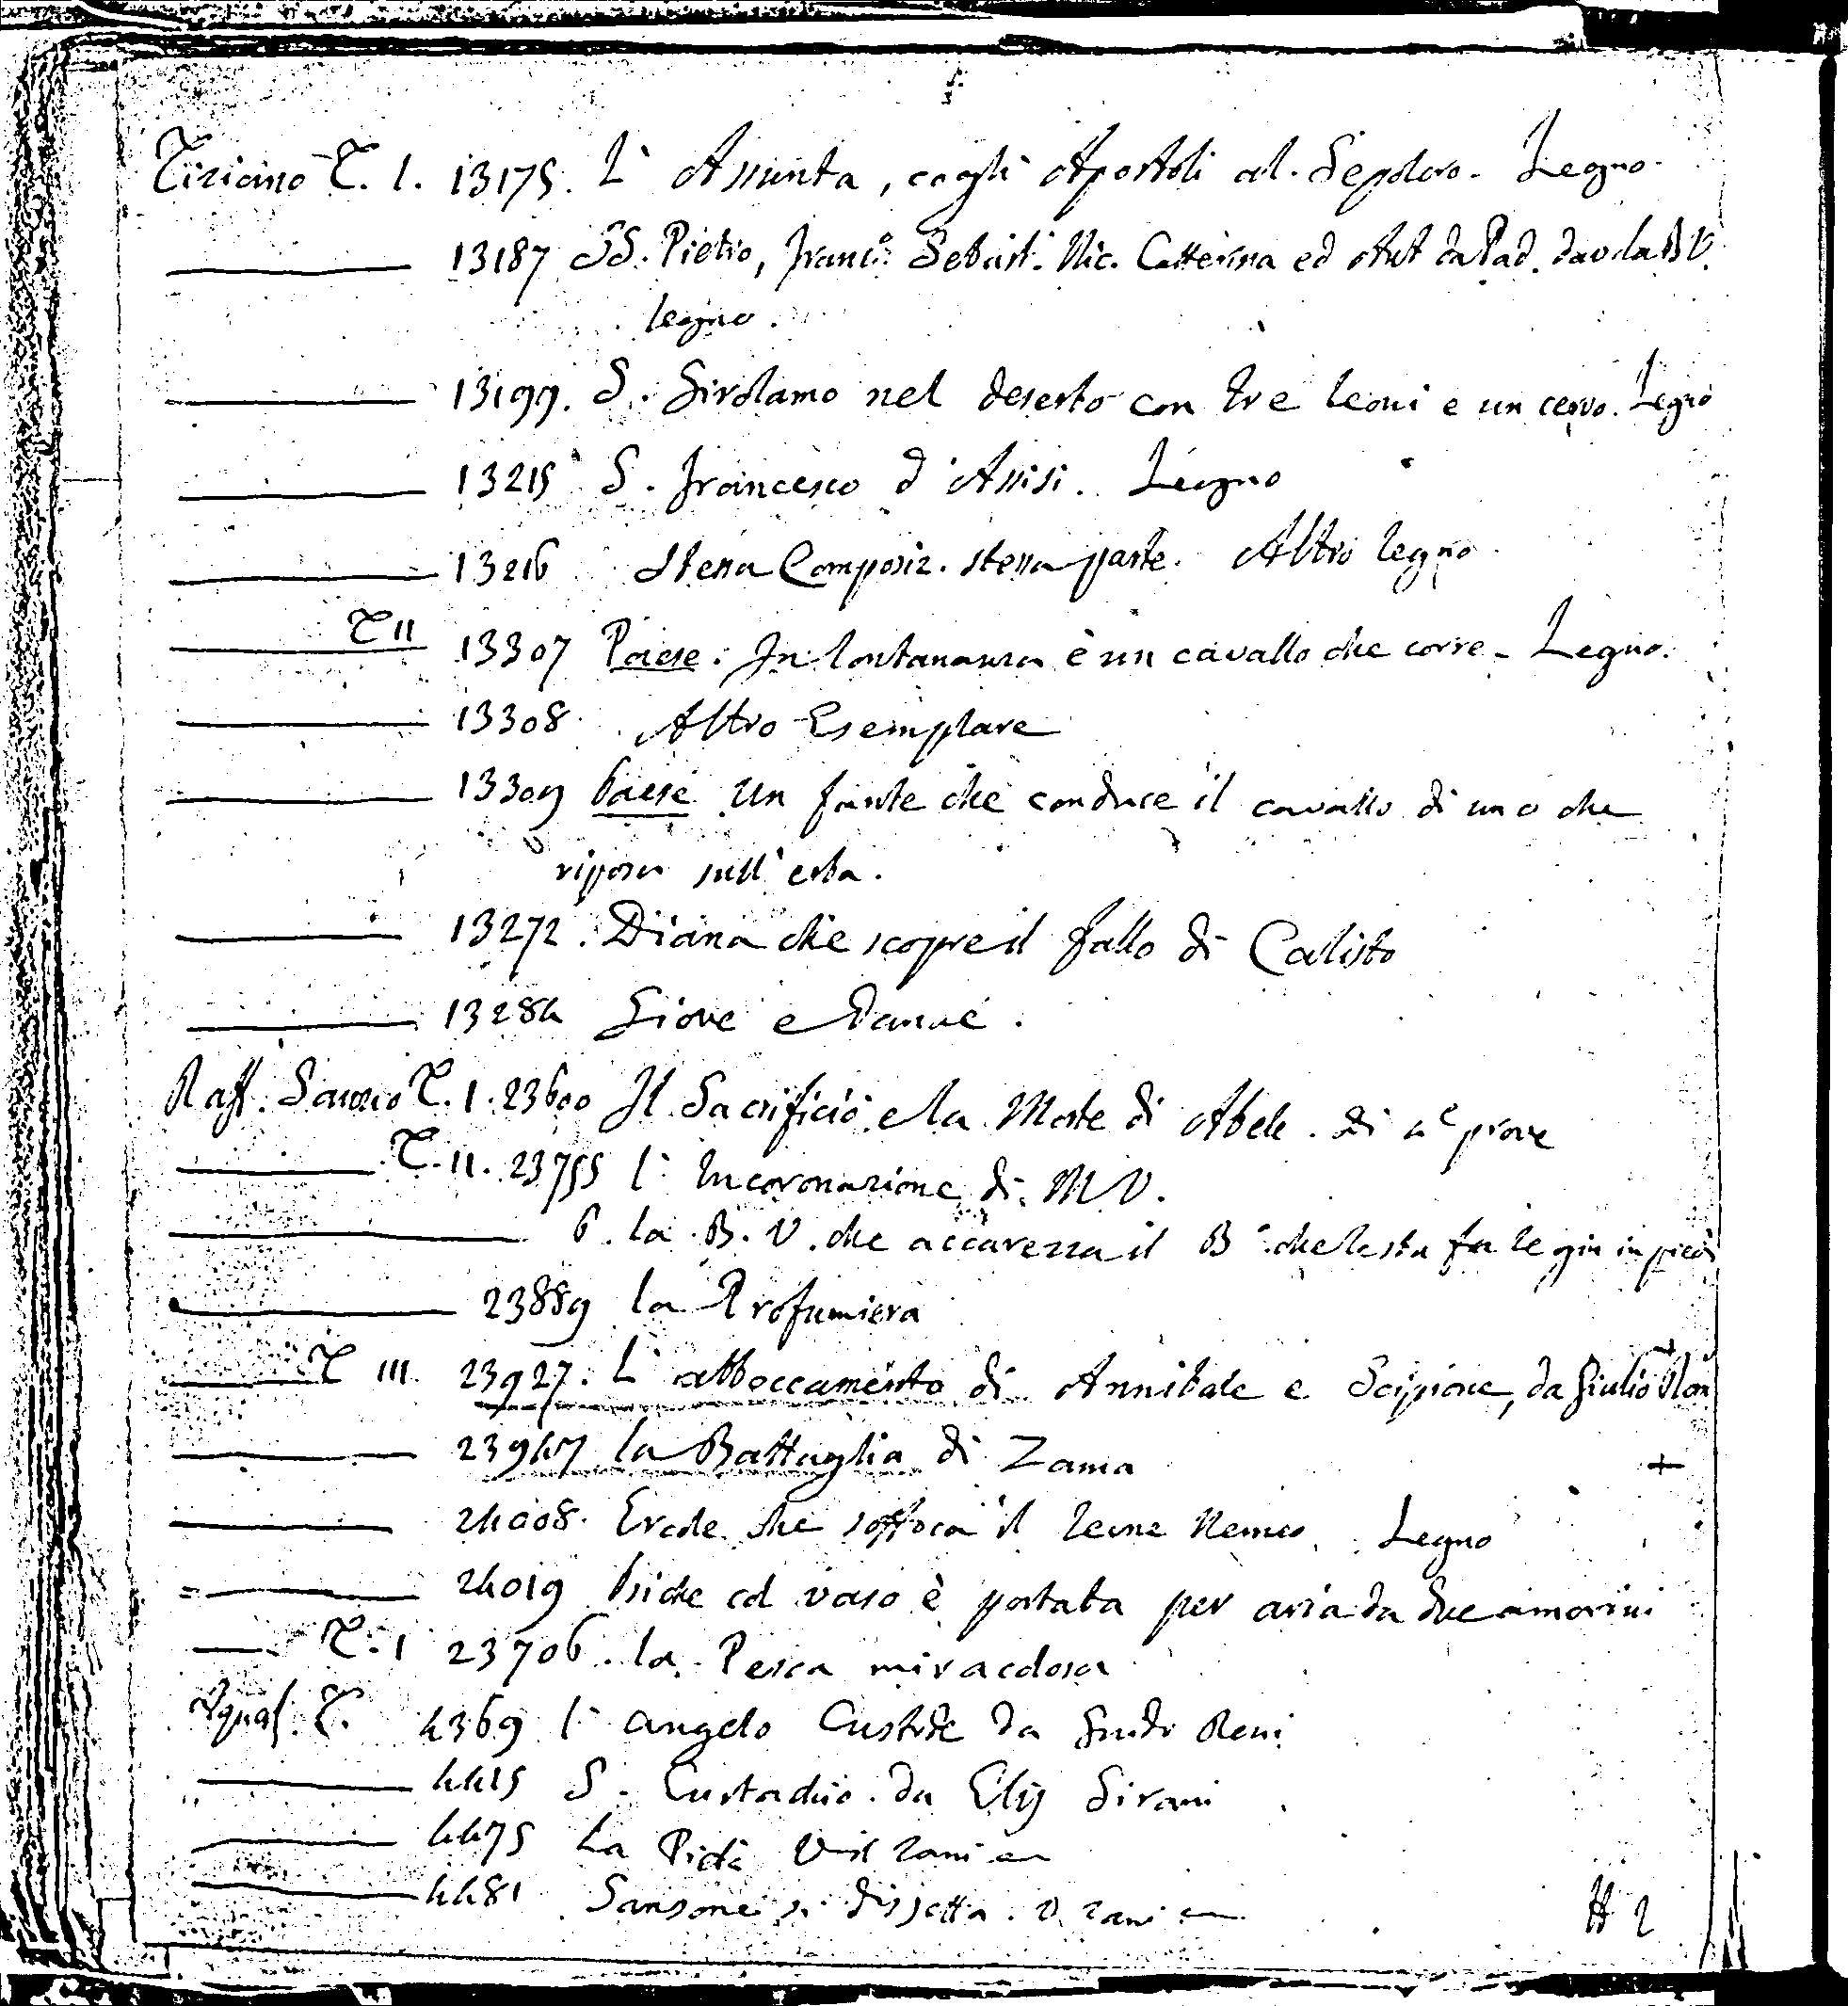 Tiziano T. 1. 13175. L' Assunta, cogli Apostoli al Sepolcro. Legno.
13187 SS. Pietro, Franc.º Sebast. Nic. Catterina ed Ant da Pad. B V.
legno.
13199. S. Girolamo nel deserto con tre leoni e un cervo. Legno
13215 S. Francesco d'Assisi. Legno
13216 Stessa Composiz. stessa parte. Altro legno
T II 13307 Paese. In lontananza è un cavallo che corre. Legno.
13308 Altro Esemplare
13309 Paese Un fante che conduce il cavallo di uno che
riposa sull'erba.
13272. Diana che scopre il fallo di Calisto
13284 Giove e Danae.
Raff. Sanzio T. 1. 23600 Il Sacrificio e la Morte di Abele. di prove
T. II. 23755 l'Incoronazione di M V.
6. la B. V. che accarezza il Bº che le sta fa le gin in piedi
23889 la Profumiera
T III. 23927. L'abboccamento di Annibale e Scipione, da Giulio Rom
23947 la Battaglia di Zama +
24008. Ercole che soffoca il leone Nemeo. Legno
24019 Psiche col vaso è portata per aria da due amorini
T. 1 23706. la Pesca miracolosa
T. 4369 l'angelo Custode da Guido Reni
4415 S. Eustachio. da Elis Sirani
4475 La Pietà Zani
4481 Sansone si dissetta. V. Zani
# 2